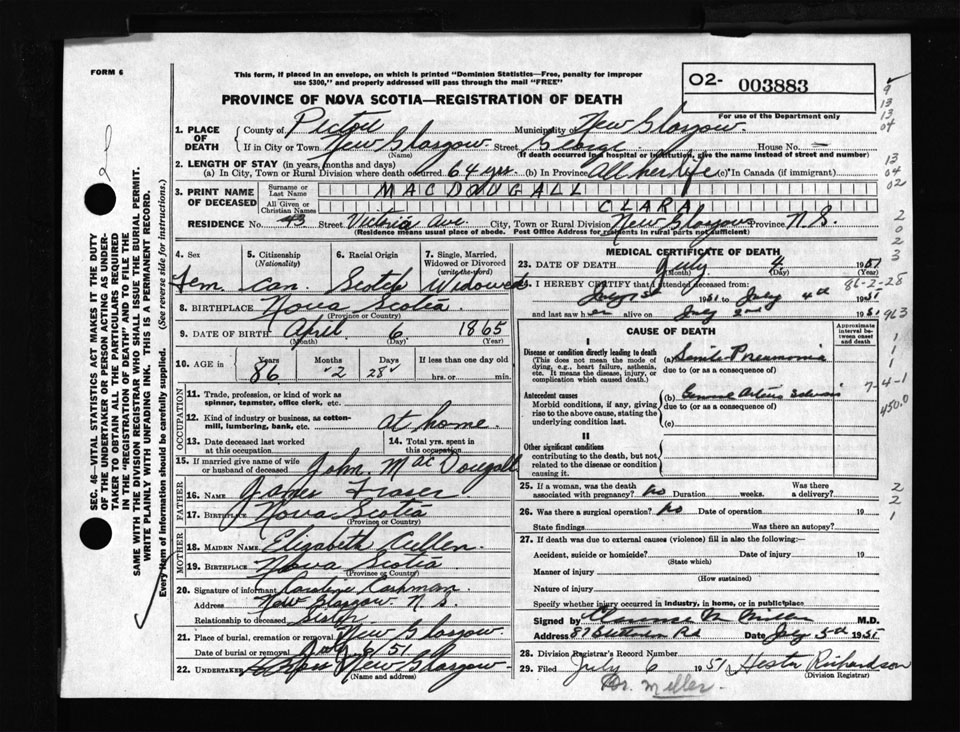 FORM 6
This form, if placed in an envelope, on which is printed "Dominion Statistics—Free, penalty for improper
use $300," and properly addressed will pass through the mail "FREE"
02- 003883
PROVINCE OF NOVA SCOTIA—REGISTRATION OF DEATH
For use of the Department only
1. PLACE OF DEATH County of Pictou Municipality of New Glasgow.
If in City or Town New Glasgow Street George House No. —
(Name) (If death occurred in a hospital or institution, give its name instead of street and number)
2. LENGTH OF STAY (in years, months and days)
(a) In City, Town or Rural Division where death occurred 64 yrs. (b) In Province All her life (c) In Canada (if immigrant)
3. PRINT NAME OF DECEASED Surname or Last Name MACDOUGALL
All Given or Christian Names CLARA
RESIDENCE No. 43 Street Victoria Ave. City, Town or Rural Division New Glasgow Province N.S.
(Residence means usual place of abode. Post Office Address for residents in rural parts not sufficient)
4. Sex Fem.
5. Citizenship (Nationality) Can.
6. Racial Origin Scotch
7. Single, Married, Widowed or Divorced (write the word) Widowed
8. BIRTHPLACE Nova Scotia
(Province or Country)
9. DATE OF BIRTH April 6 1865
(Month) (Day) (Year)
10. AGE in Years 86 Months 2 Days 28 If less than one day old hrs. or min.
OCCUPATION
11. Trade, profession, or kind of work as spinner, teamster, office clerk, etc.
12. Kind of industry or business, as cotton-mill, lumbering, bank, etc. At home.
13. Date deceased last worked at this occupation
14. Total yrs. spent in this occupation
15. If married give name of wife or husband of deceased John MacDougall
FATHER
16. Name James Fraser
17. Birthplace Nova Scotia
(Province or Country)
MOTHER
18. Maiden Name Elizabeth Cullen.
19. Birthplace Nova Scotia
(Province or Country)
20. Signature of informant Caroline Cashman
Address New Glasgow N.S.
Relationship to deceased Sister
21. Place of burial, cremation or removal New Glasgow.
Date of burial or removal July 51
22. Undertaker New Glasgow
(Name and address)
MEDICAL CERTIFICATE OF DEATH
23. DATE OF DEATH July 4 1951
(Month) (Day) (Year)
24. I HEREBY CERTIFY that I attended deceased from:
July 1st 1951 to July 4th 1951
and last saw her alive on July 2nd 1951
86-2-28
963
CAUSE OF DEATH
Approximate interval between onset and death
I
Disease or condition directly leading to death (a) Senile Pneumonia
(This does not mean the mode of dying, e.g., heart failure, asthenia, etc. It means the disease, injury, or complication which caused death.)
due to (or as a consequence of)
Antecedent causes (b) General Arterio Sclerosis
Morbid conditions, if any, giving rise to the above cause, stating the underlying condition last.
due to (or as a consequence of)
(c)
7-4-1
450.0
II
Other significant conditions contributing to the death, but not related to the disease or condition causing it.
25. If a woman, was the death associated with pregnancy? No Duration weeks. Was there a delivery?
26. Was there a surgical operation? No Date of operation 19
State findings Was there an autopsy?
27. If death was due to external causes (violence) fill in also the following:—
Accident, suicide or homicide? Date of injury 19
(State which)
Manner of injury
(How sustained)
Nature of injury
Specify whether injury occurred in industry, in home, or in public place
Signed by Clarence M. Miller M.D.
Address Date July 5th 1951
28. Division Registrar's Record Number
29. Filed July 6 1951 Hester Richardson
(Division Registrar)
Dr. Miller.
SEC. 46—VITAL STATISTICS ACT MAKES IT THE DUTY
OF THE UNDERTAKER OR PERSON ACTING AS UNDER-
TAKER TO OBTAIN ALL THE PARTICULARS REQUIRED
IN THE "REGISTRATION OF DEATH" AND TO FILE THE
SAME WITH THE DIVISION REGISTRAR WHO SHALL ISSUE THE BURIAL PERMIT.
WRITE PLAINLY WITH UNFADING INK. THIS IS A PERMANENT RECORD.
Every item of information should be carefully supplied. (See reverse side for instructions.)
9
13
13
04
13
04
02
2
0
2
3
1
1
1
1
2
2
1